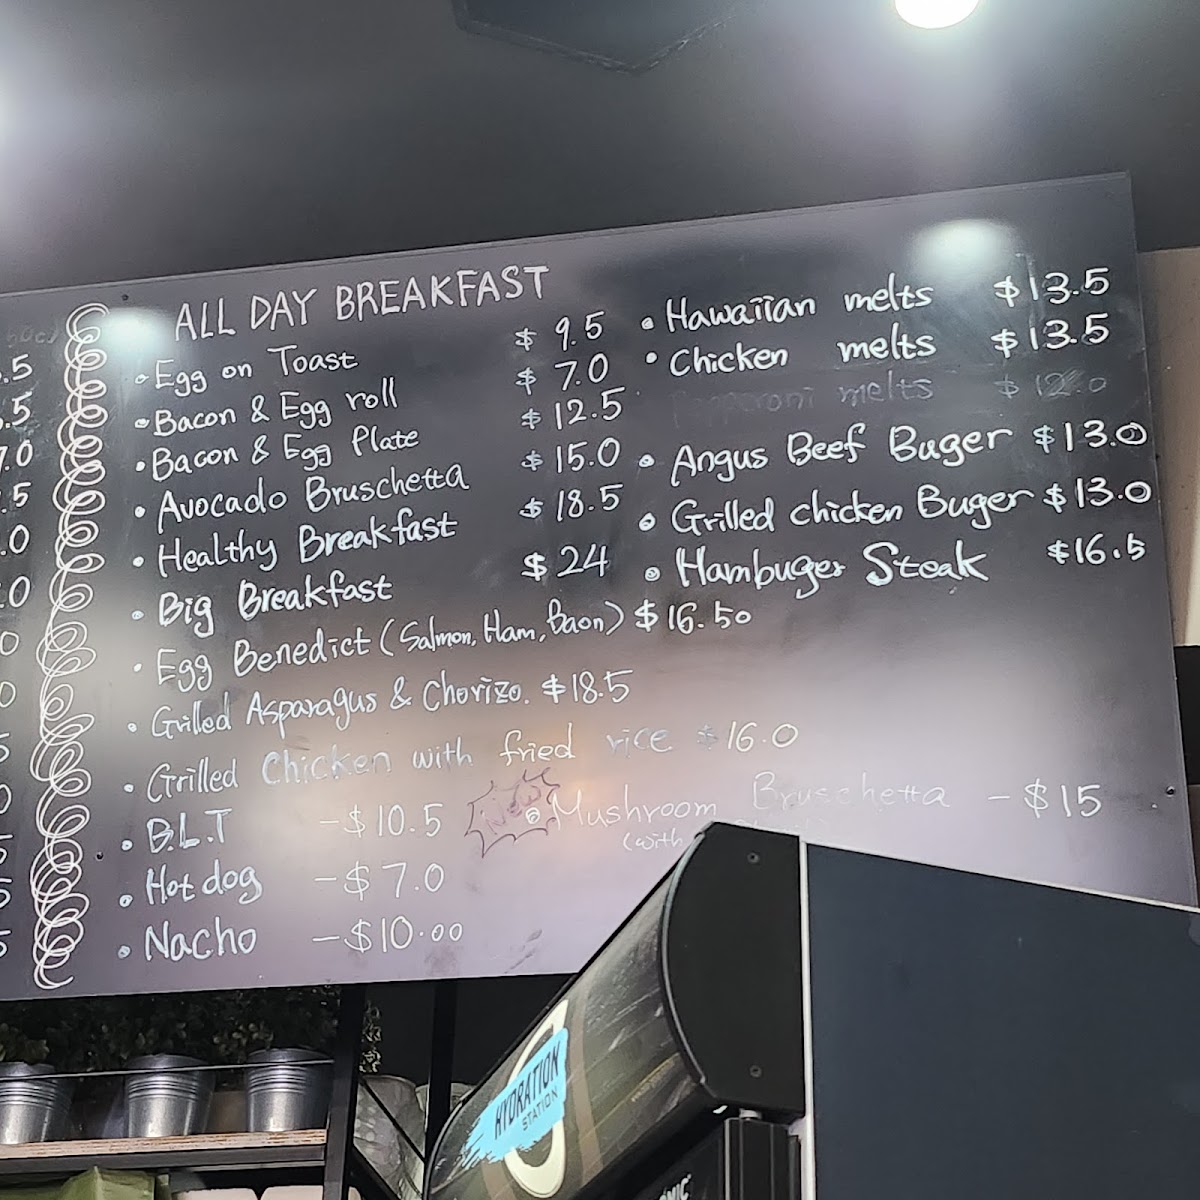 ALL DAY BREAKFAST
Egg on Toast $ 9.5
Bacon & Egg roll $ 7.0
Bacon & Egg Plate $ 12.5
Avocado Bruschetta $ 15.0
Healthy Breakfast $ 18.5
Big Breakfast $ 24
Egg Benedict (Salmon, Ham, Baon) $ 16.50
Grilled Asparagus & Chorizo. $18.5
Grilled Chicken with fried rice $16.0
B.L.T -$10.5
Hot dog -$7.0
Nacho -$10.00
Hawaiian melts $13.5
Chicken melts $13.5
melts $12.0
Angus Beef Buger $13.0
Grilled chicken Buger $13.0
Hambuger Steak $16.5
New
Mushroom Bruschetta -$15
(with
HYDRATION
STATION